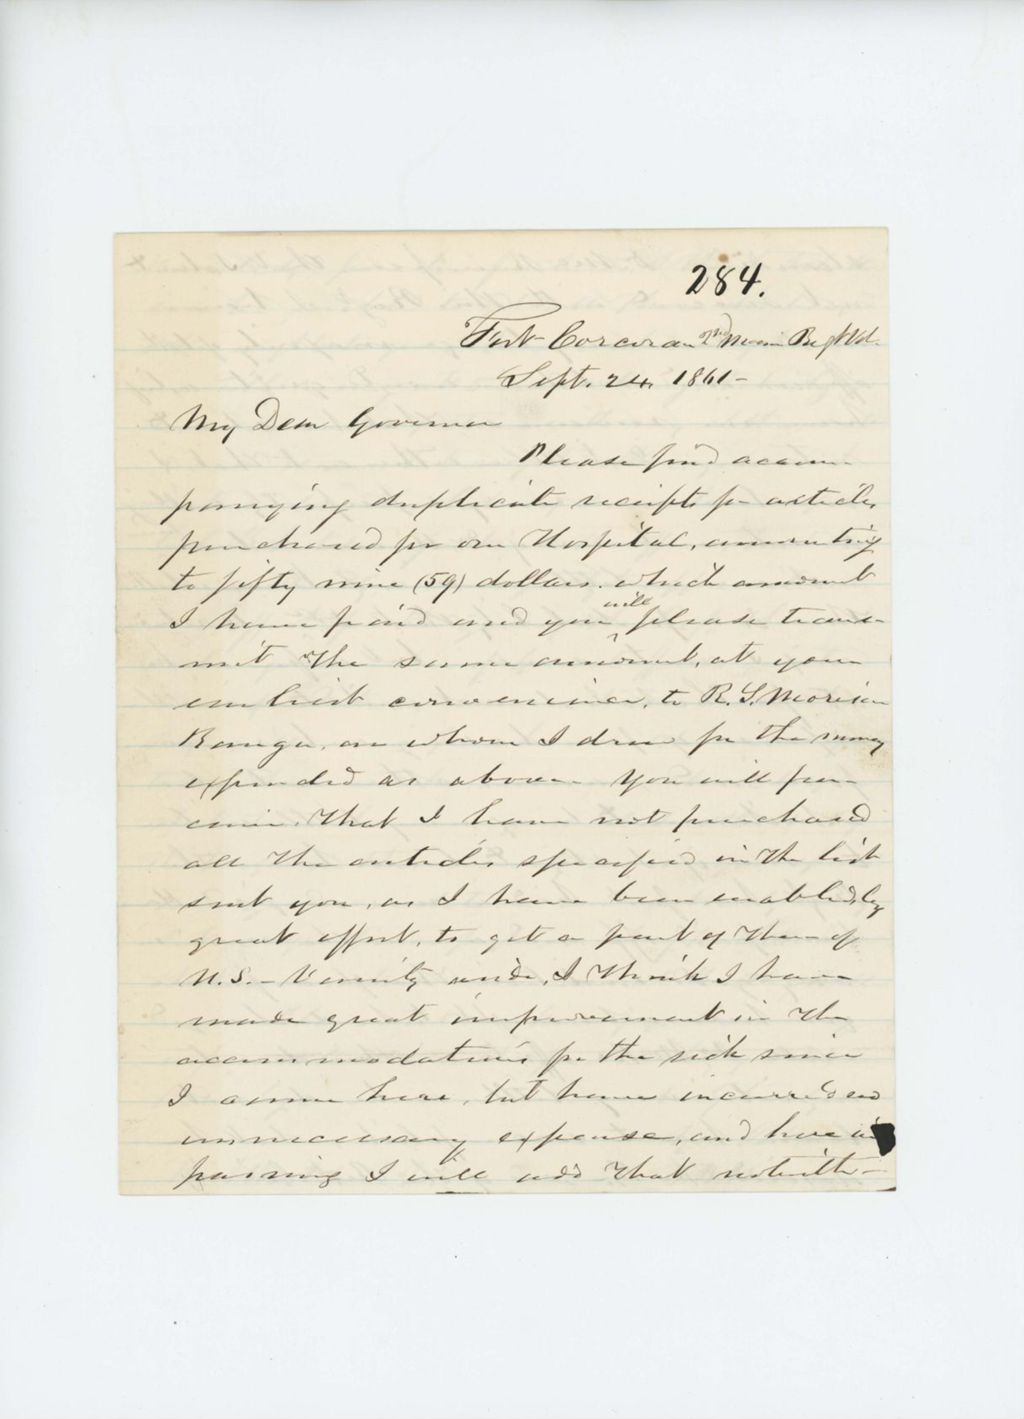 284.
Fort Corcoran 2nd Maine Regt Vol.
Sept. 24, 1861-
My Dear Governor
Please find accom-
panying duplicate receipts for articles
purchased for our Hospital, amounting
to fifty nine (59) dollars. which amount
I have paid and you will please trans-
mit the same amount, at your
earliest convenience, to R. S. Morison
Bangor, on whom I drew for the money
expended as above. You will per-
ceive, that I have not purchased
all the articles specified in the list
sent you, as I have been enabled, by
great effort, to get a part of them of
U.S.- Vanity aside, I think I have
made great improvement in the
accommodations for the sick since
I came here, but have incurred no
unnecessary expense, and here in
passing I will add that notwith-